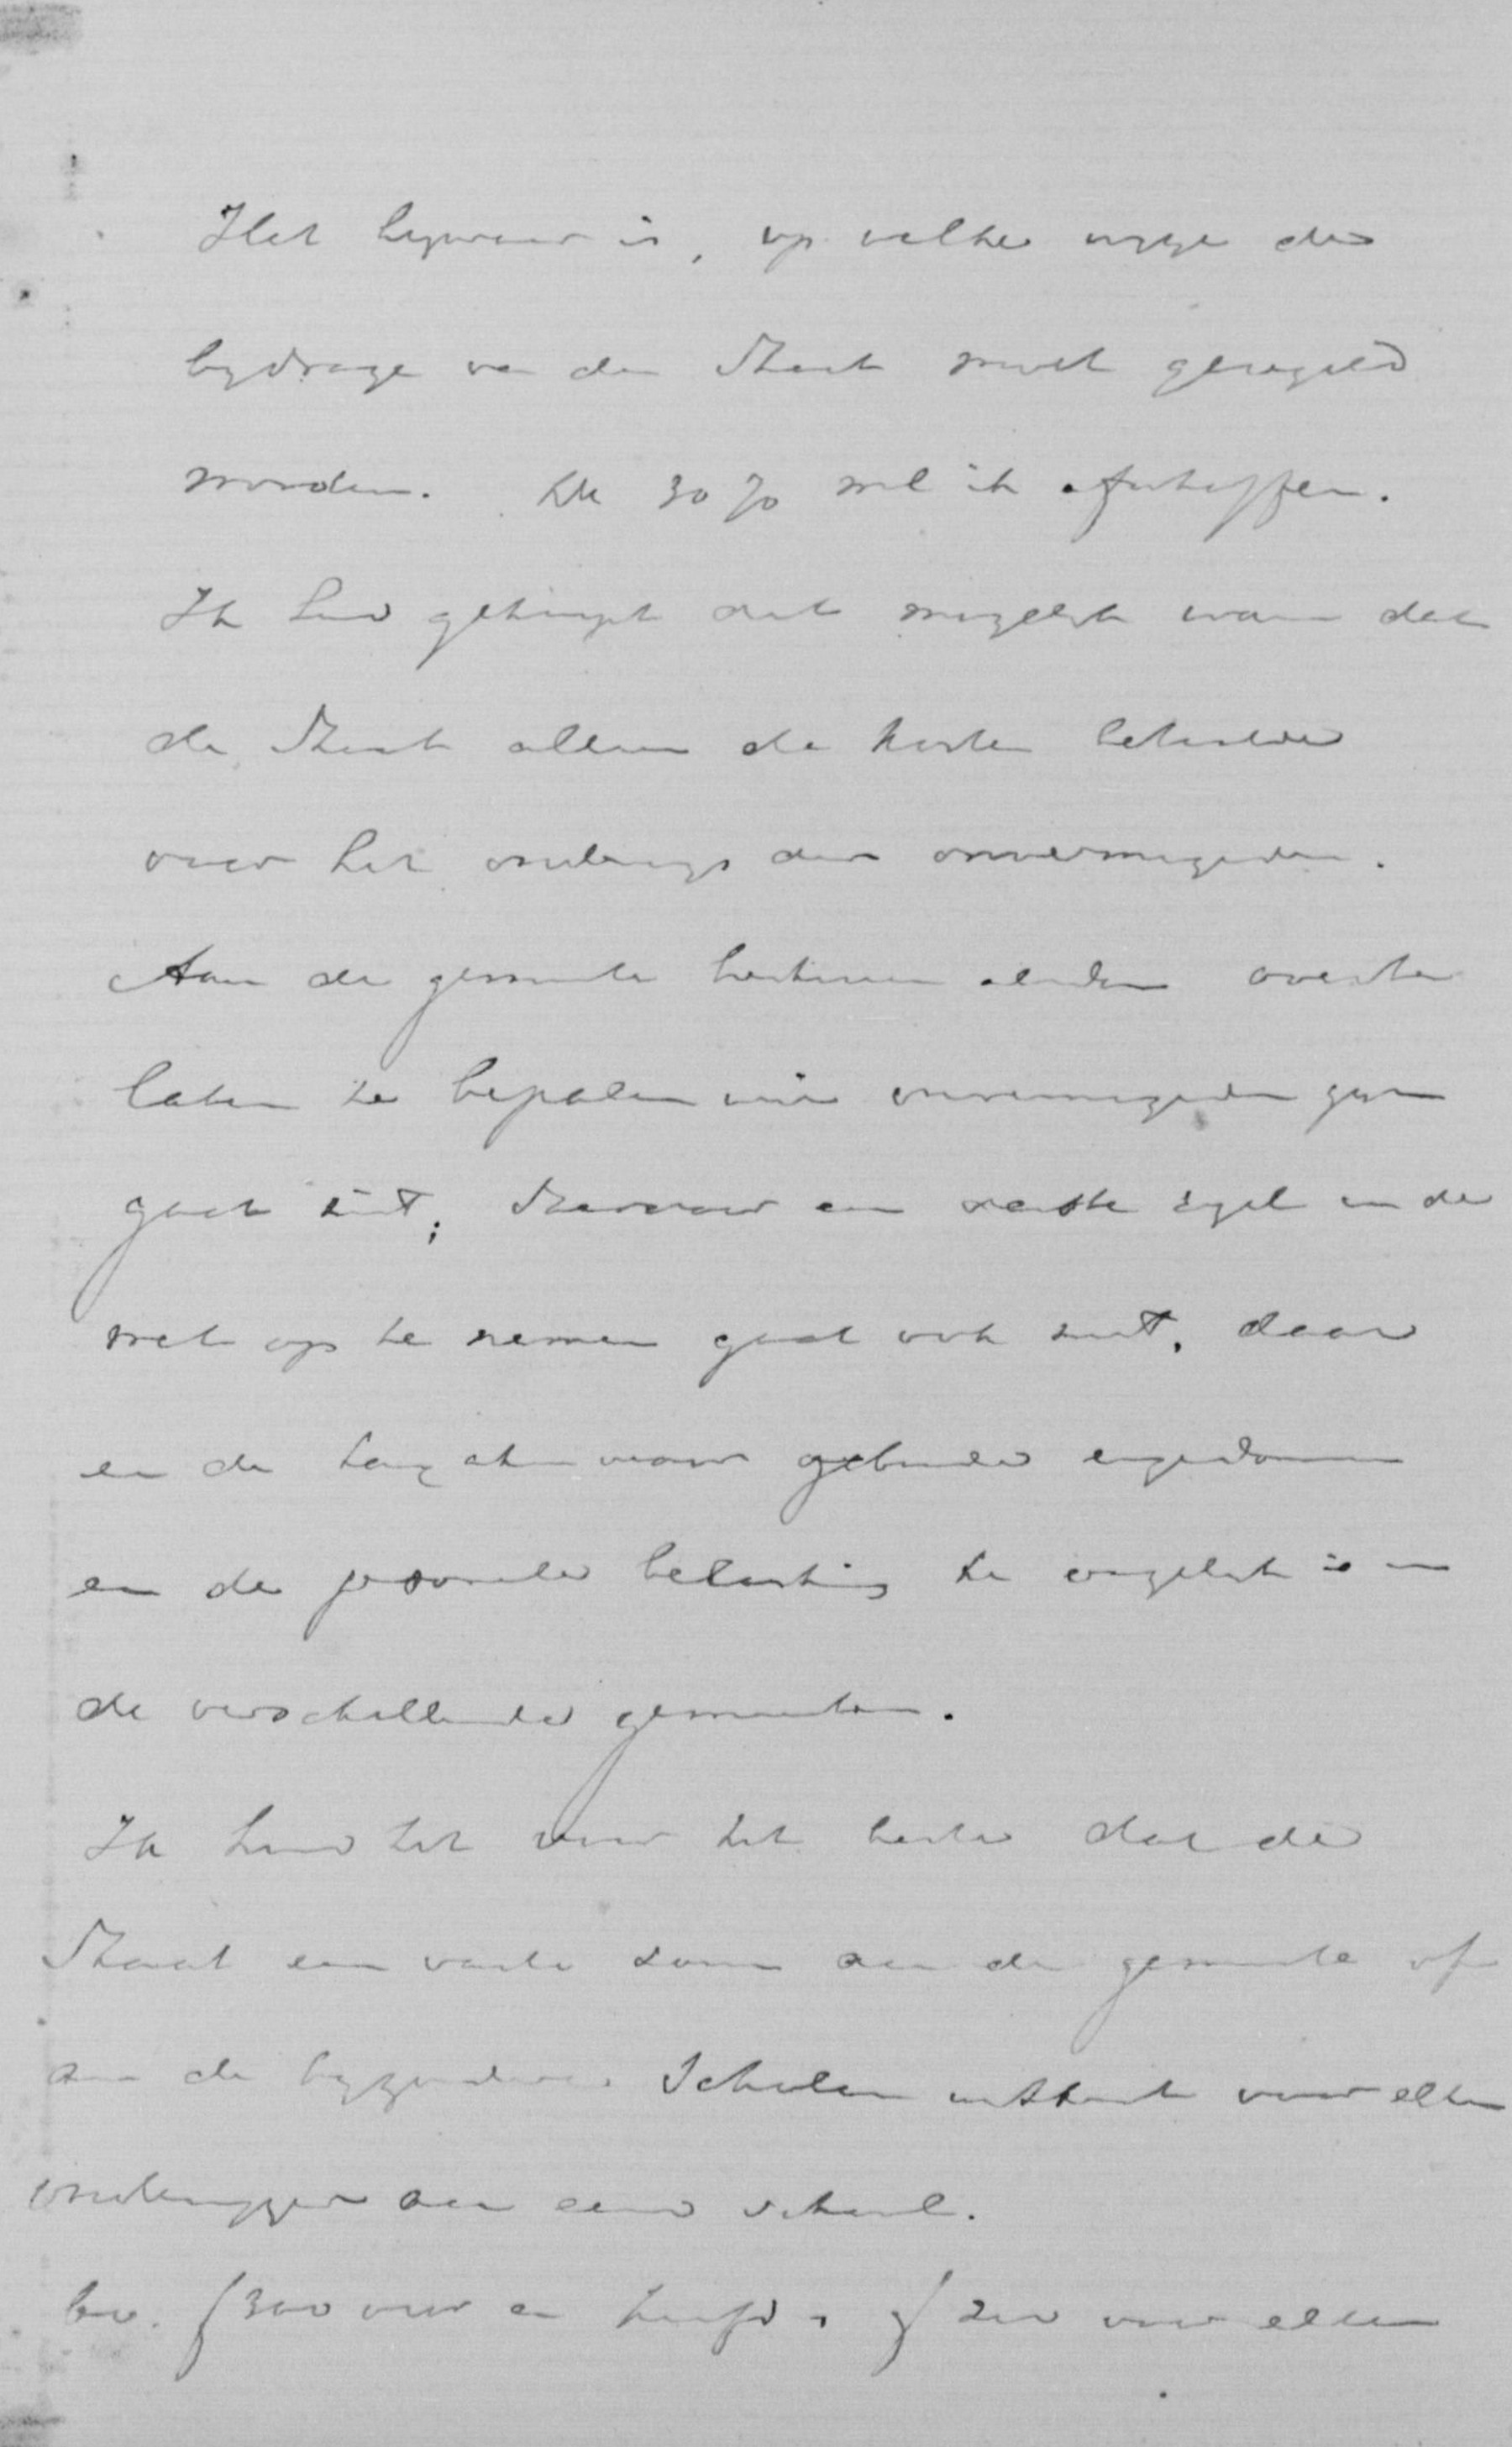 Het bezwaar is, op welke wijze de
bijdrage van den Staat moet geregeld
worden. De 30 % wil ik afschaffen.
Ik had gehoopt dat mogelijk ware dat
de Staat alleen de kosten betaalde
voor het onderwijs der onvermogenden.
Aan de gemeente besturen alleen over te
laten te bepalen wie onvermogenden zijn
gaat niet; daarvoor een vaste regel in de
wet op te nemen gaat ook niet, daar
en de taxatie van gebouwde eigendommen
en de personele belasting te ongelijk is in
de verschillende gemeenten.
Ik houd het voor het beste dat de
Staat een vaste som aan de gemeente of
aan de bijzondere Scholen uitkeert voor elken
onderwijzer aan eene school.
bv. f 300 voor een hoofd, f 200 voor elken